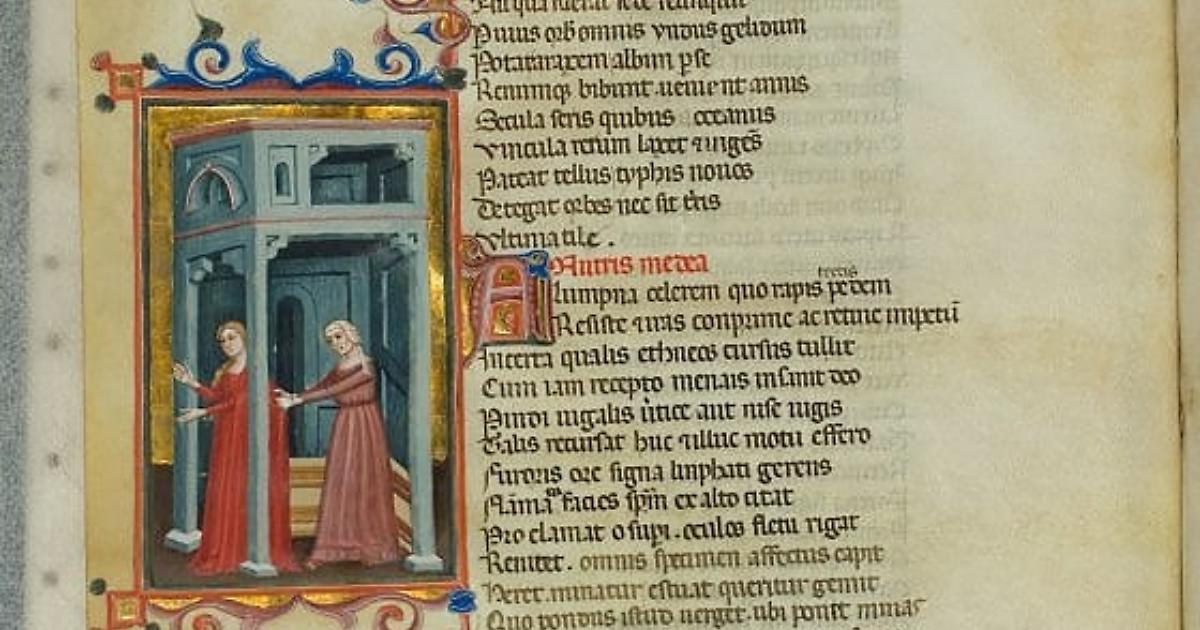 Peruius orbis omnis yndus gelidum
Potat araxem albim perse
Renumque bibunt uenient annis
Secula seris quibus occeanus
vincula rerum laxet et ingens
Pateat tellus typhis nouos
Detegat orbes nec sit terris
vltima tile.
Nutris medea
Alumpna celerem quo rapis tectis pedem
Resiste et iras conprime ac retine impetum
Incerta qualis ethneos cursus tullit
Cum iam recepto menais insanit deo
Pindi iugalis uertice aut nise iugis
Talis recursat huc et illuc motu effero
Furoris ore signa linphati gerens
Flamata facies spiritum ex alto citat
Proclamat o supi. oculos fletu rigat
Renitet. omnis specimen affectus capit
Heret. minatur estuat queritur gemit
Quo pondus istud uerget. ubi ponet minas